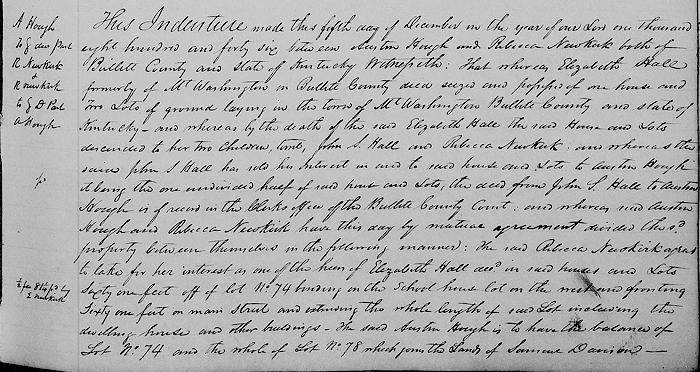 A Hough
To } deed Part
R Newkirk
&
R Newkirk
to } D Part
A Hough
This Indenture made this fifth day of December in the year of our Lord one thousand
eight hundred and forty six between Austin Hough and Rebecca Newkirk both of
Bullitt County and State of Kentucky Witnesseth: That whereas Elizabeth Hall
formerly of Mt Washington in Bullitt County died seized and possessed of one house and
Two Lots of ground laying in the town of Mt Washington Bullitt County and state of
Kentucky - and whereas by the death of the said Elizabeth Hall the said House and Lots
descended to her two children, towit, John S. Hall and Rebecca Newkirk: and whereas the
said John S Hall has sold his interest in and to said house and Lots to Austin Hough
it being the one undivided half of said house and Lots, the deed from John S. Hall to Austin
Hough is of record in the Clerks office of the Bullitt County Court: and whereas said Austin
Hough and Rebecca Newkirk have this day by mutual agreement divided the sd
property between themselves in the following manner: The said Rebecca Newkirk agrees
to take for her interest as one of the heirs of Elizabeth Hall decd in said houses and Lots
Sixty one feet off of lot No 74 binding on the School house lot on the west and fronting
Sixty one feet on main Street and extending the whole length of said Lot including the
dwelling house and other buildings - The said Austin Hough is to have the balance of
Lot No 74 and the whole of Lot No 78 which joins the Lands of Samuel Davison —